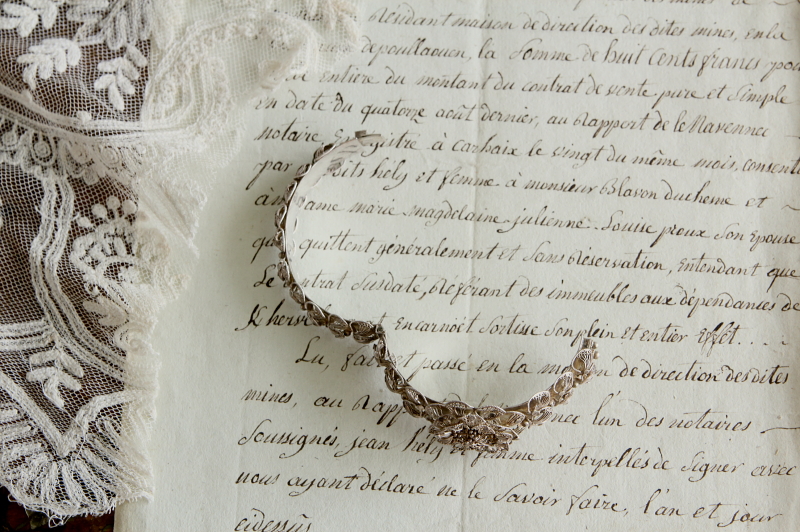 Résidant maison de direction des dites mines, en la
depoullaouen, la Somme de huit Cents francs pour
entiere du montant du contrat de vente pure et Simple
En date du quatorze août dernier, au Rapport de le Maxennec
notaire, à Carhaix le vingt du même mois, consenti
par dits hély et femme à monsieur Blavon ducheme et
marie magdelaine julienne Louise proux Son Epouse
quittent généralement et Sans Réservation, Entendant que
Le Susdaté, Référant des immeubles aux dépendances de
K encarnoët Sortisse Son plein et entier Effet....
Lu, fait et passé en la de direction des dites
mines, au Rapport l'un des notaires
Soussignés, jean hély et femme interpellés de Signer avec
nous ayant déclaré ne le Savoir faire, l'an et jour
cidessus